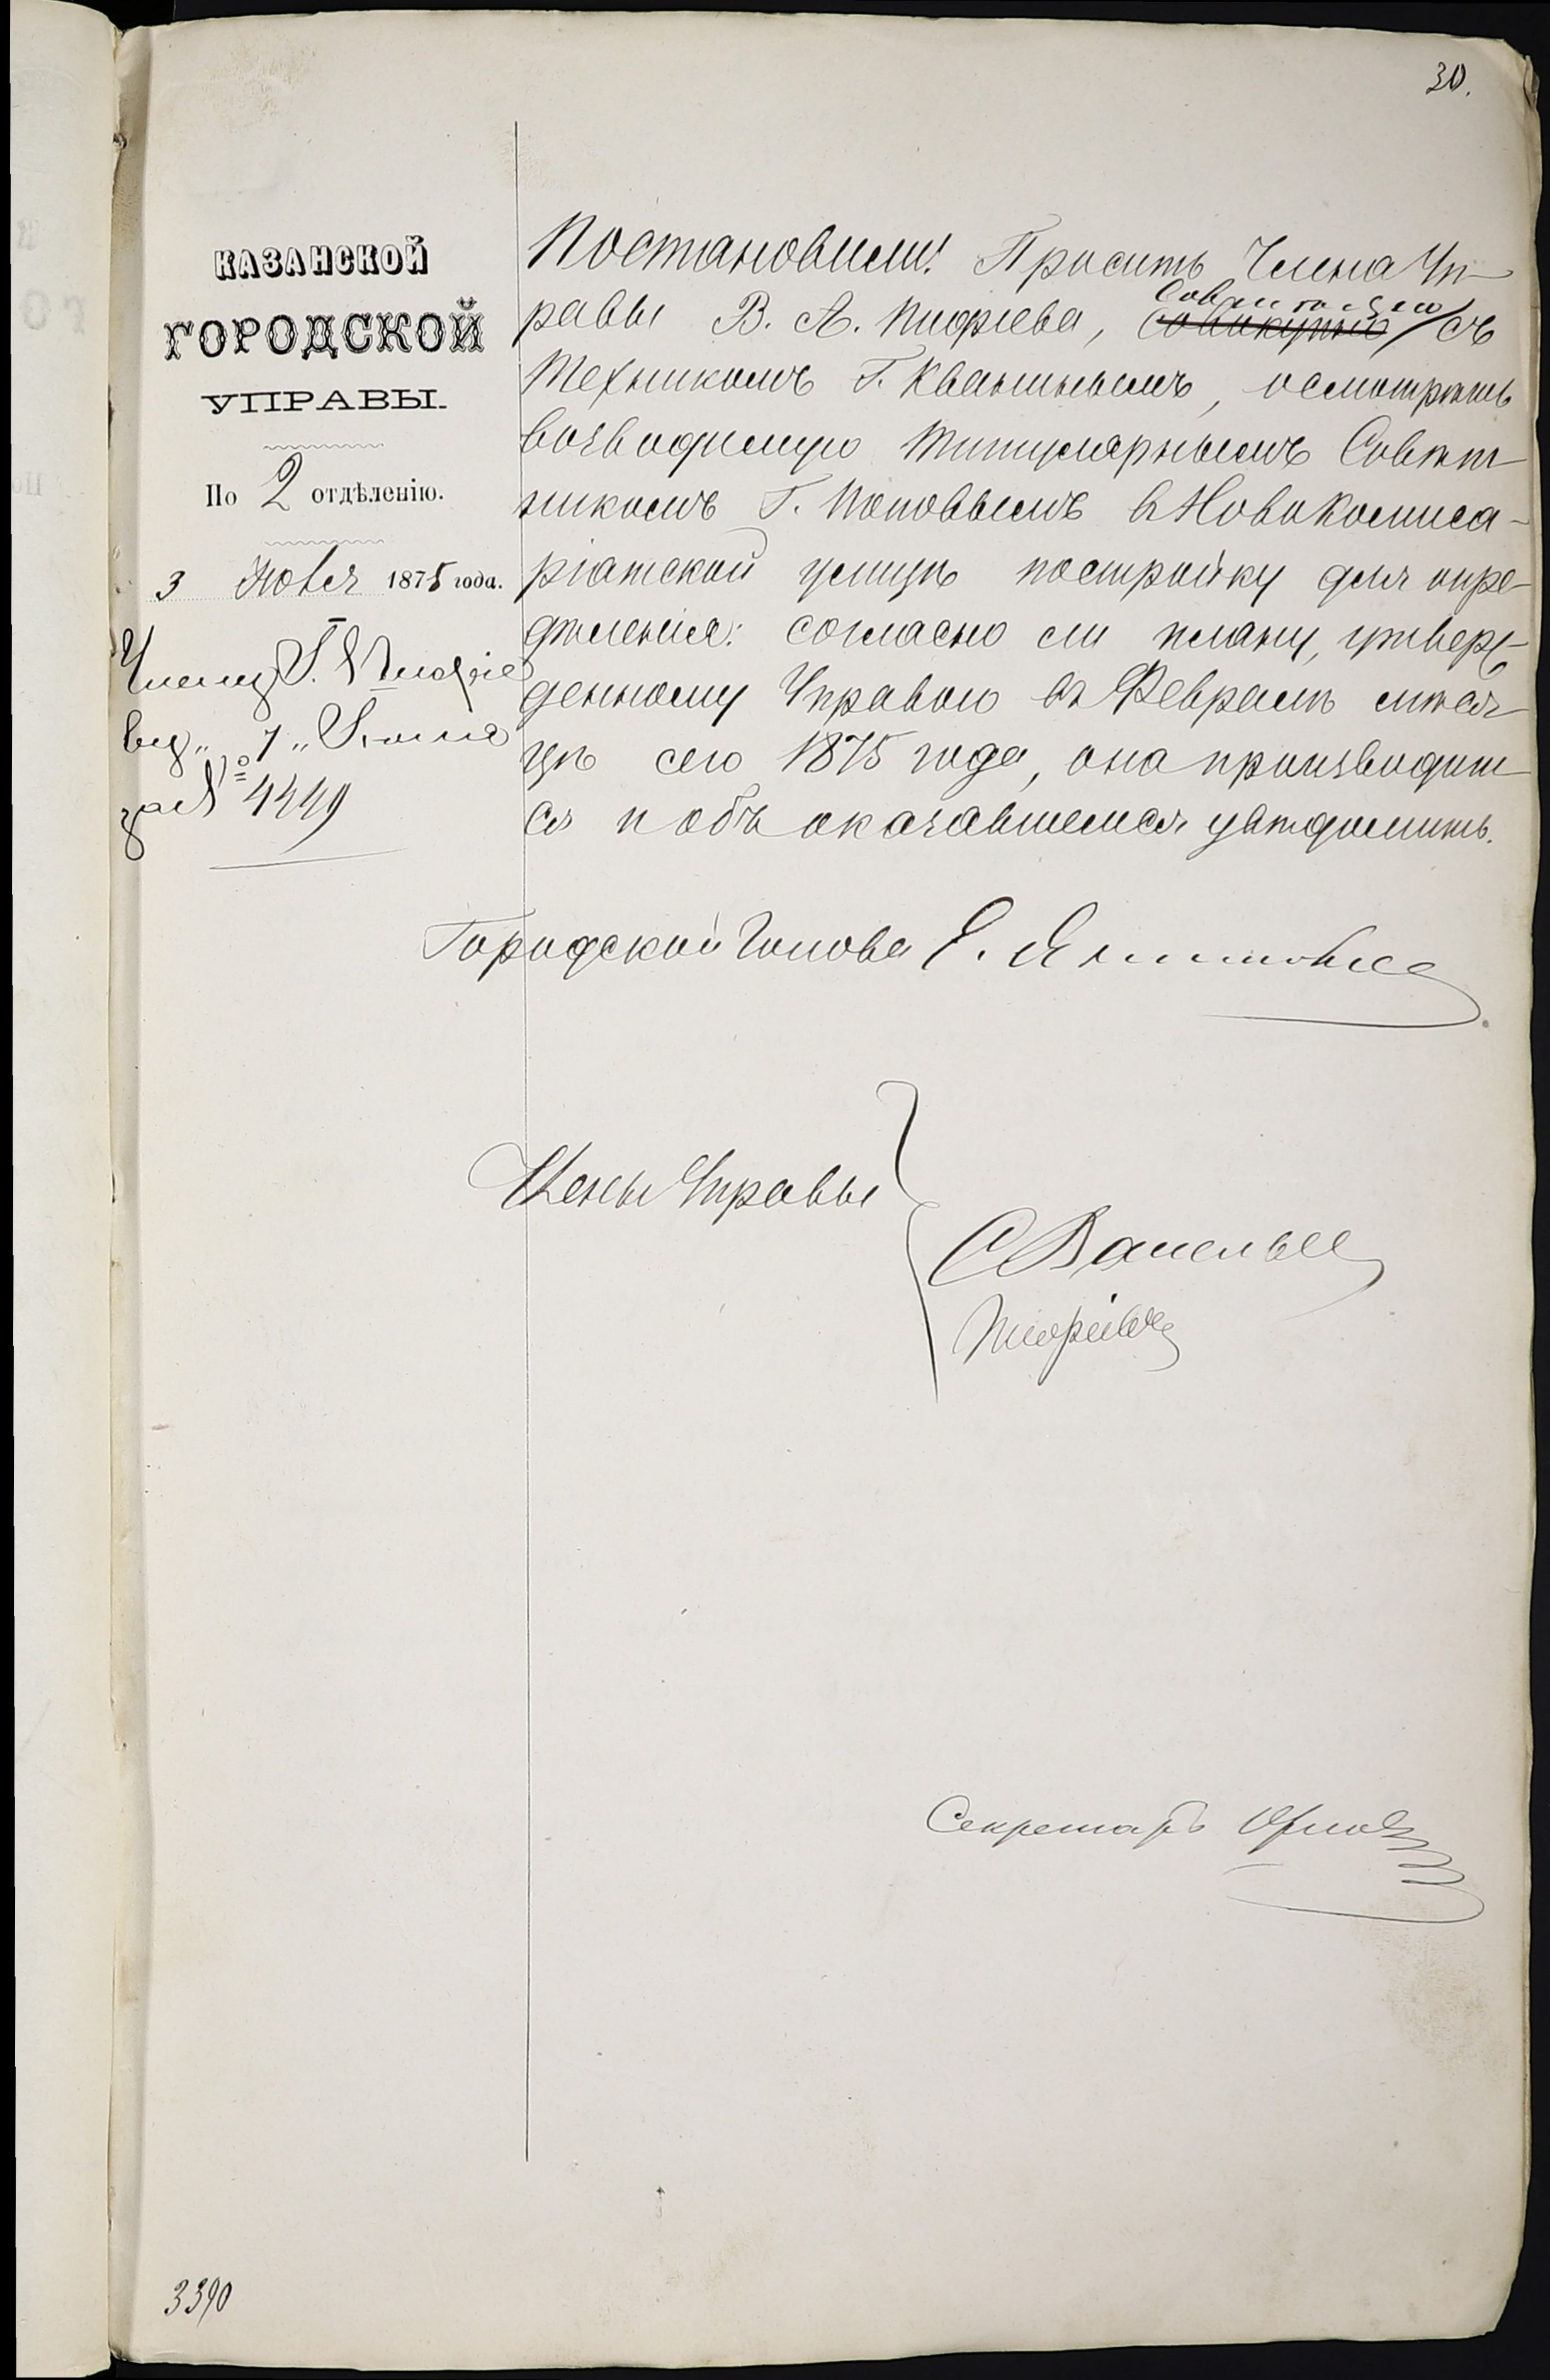 30.
КАЗАНСКОЙ
ГОРОДСКОЙ
УПРАВЫ.
По 2 отдѣленію.
3 Іюня 1875 года.
Члену Г. Тюфяе
ву „7„ Іюня
за № 4449
Постановили: Просить Члена Уп-
равы В. А. Тюфяева,
совмѣстно
совокупно съ
Техникомъ Г. Квашнинымъ, осмотрѣть
возводимую Титулярнымъ Совѣт-
никомъ Г. Поповымъ въ Новокомиса-
ріатской улицѣ постройку для опре-
дѣленія: согласно ли плану, утверж-
денному Управою въ Февралѣ мѣся-
цѣ сего 1875 года, она производит-
ся и объ оказавшемся увѣдомить.
Городской Голова Э. Янишевскій
Члены Управы
Тюфяевъ
Секретарь Орловъ
3390